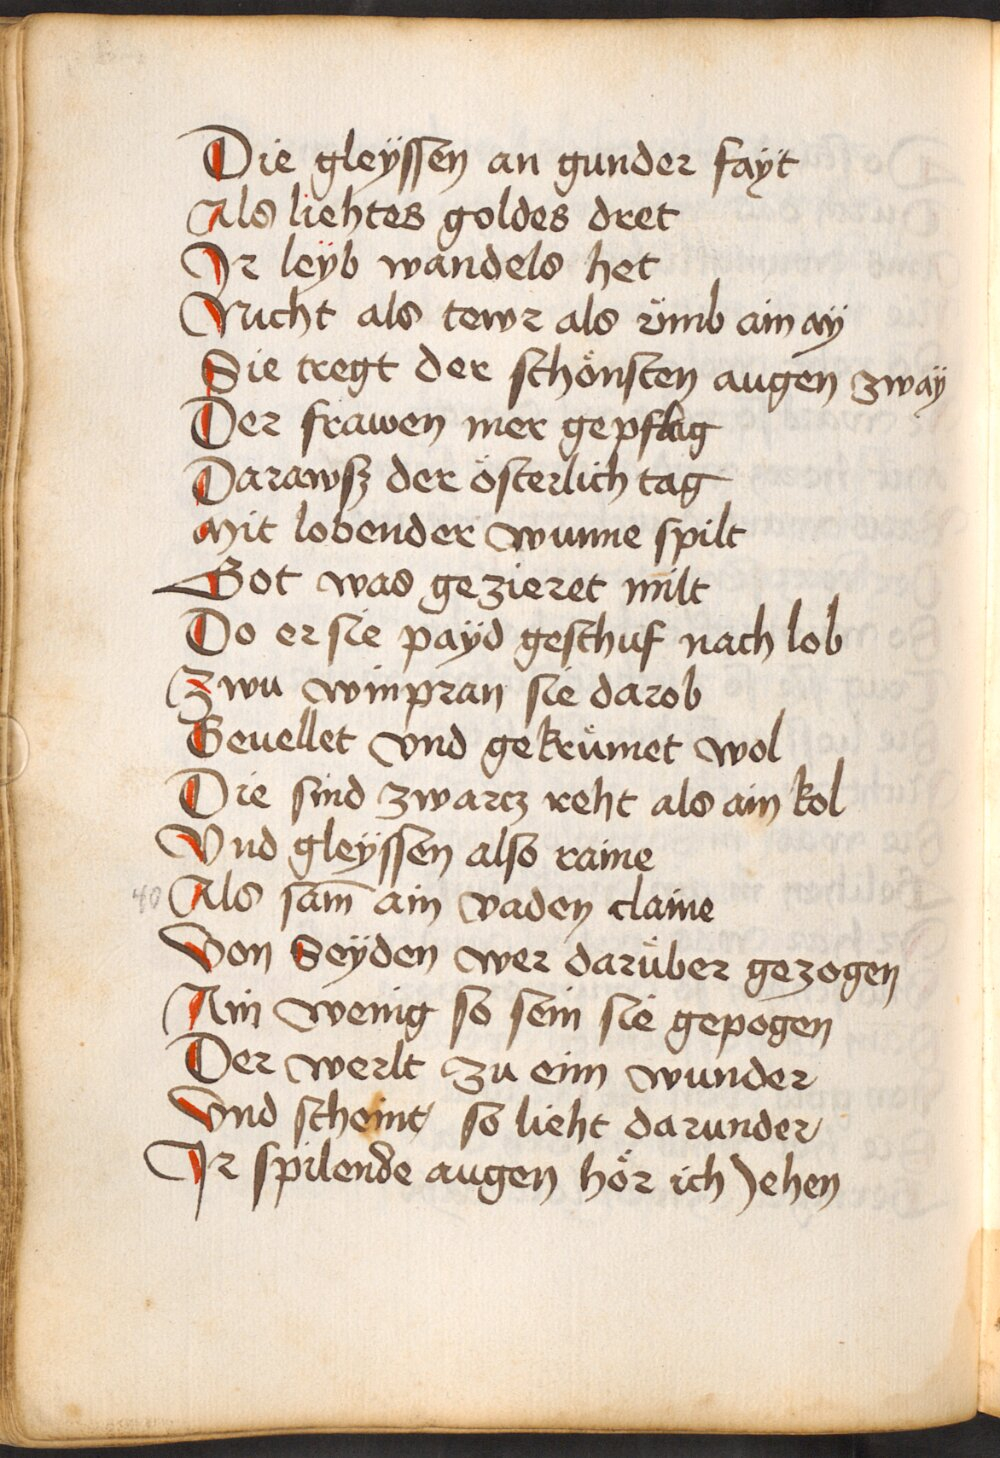 Die gleÿssen an gunder sayt
Als liehtes goldes dret
Ir leÿb wandels het
Nicht als tewr als vmb ain aÿ
Sie tregt der schönsten augen zwaÿ
Der frawen mer gepflag
Darawsz der österlich tag
Mit lobender wunne spilt
Got was gezieret milt
Do er sie paÿd geschuf nach lob
Zwu winpran sie darob
Geuellet vnd gekrümet wol
Die sind zwarcz reht als ain kol
Vnd gleÿssen also raine
40 Als sam̄ ain vaden claine
Von Seÿden wer darüber gezogen
Ain wenig so sein sie gepogen
Der werlt zu eim wunder
Vnd scheint so lieht darunder
Ir spilende augen hör ich Jehen